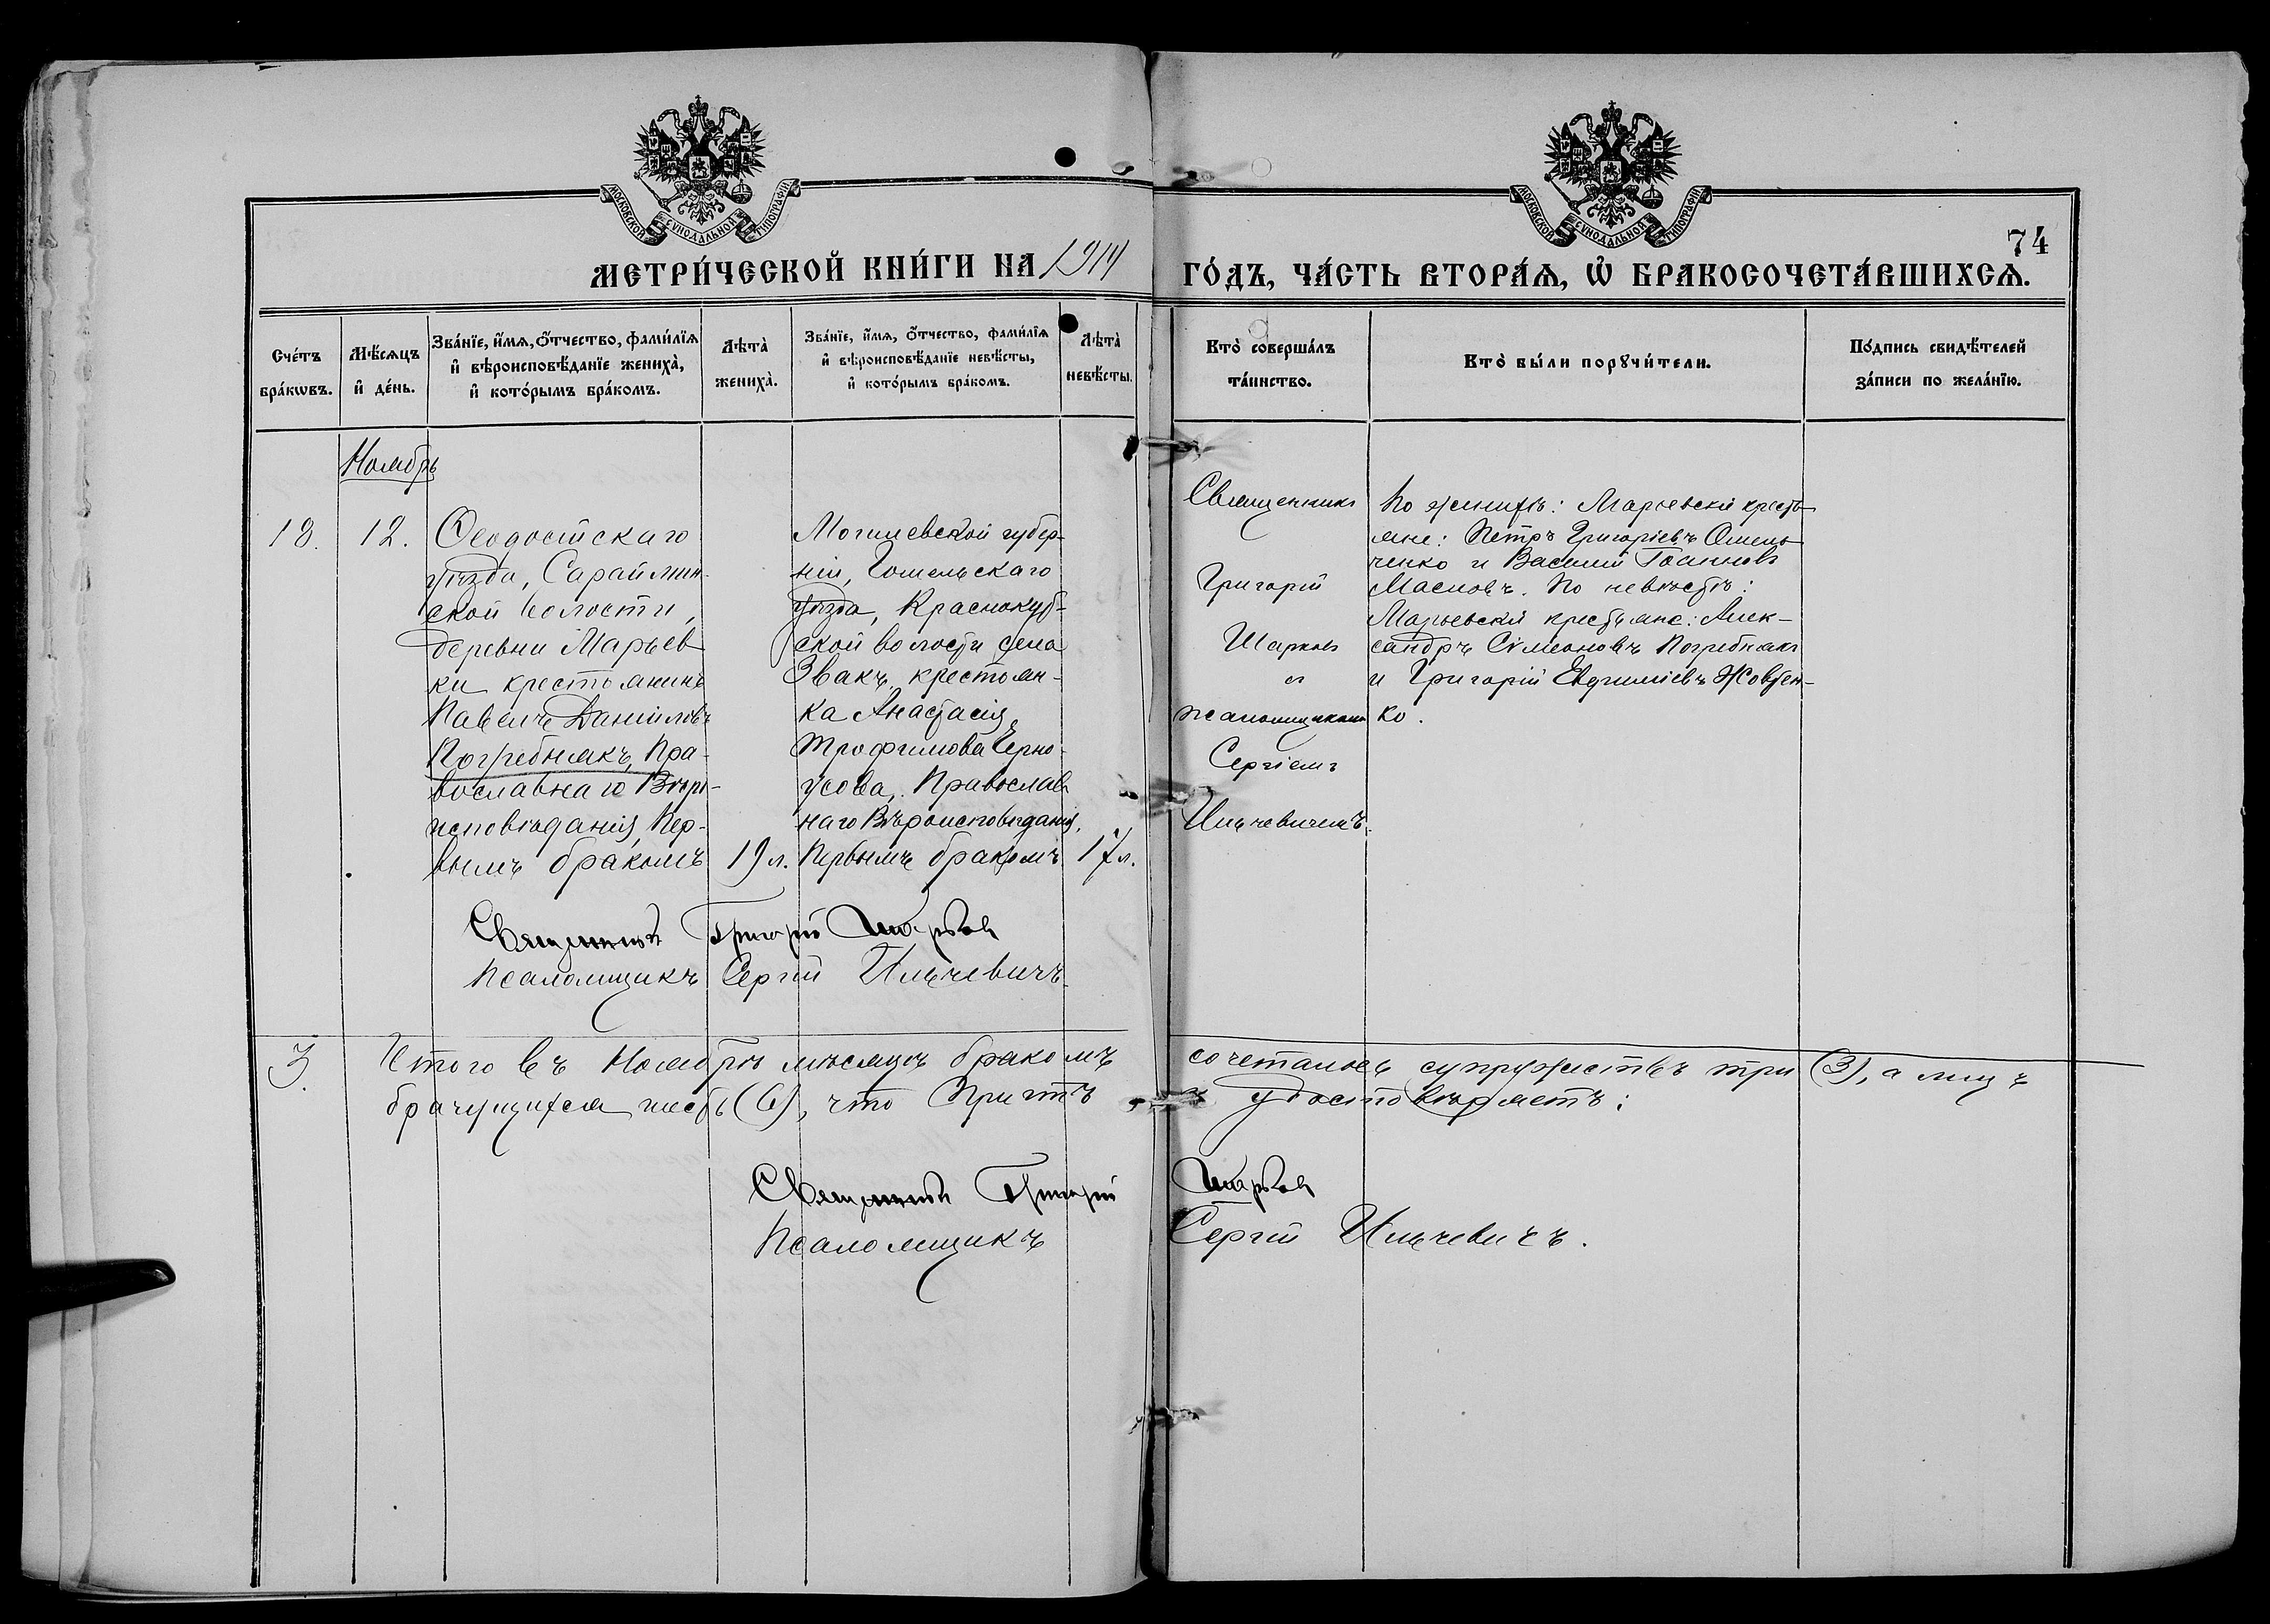 МОСКОВСКОЙ СУНОДАЛЬНОЙ ТИПОГРАФІИ
МОСКОВСКОЙ СУНОДАЛЬНОЙ ТИПОГРАФІИ
74
МЕТРИ́ЧЕСКОЙ КНИ́ГИ НА 1914 ГО́ДЪ, ЧА́СТЬ ВТОРА́Ѧ, Ѽ БРАКОСОЧЕТА́ВШИХСѦ.
Сче́тъ бра́кѡвъ.
Мѣ́сѧцъ и҆ де́нь.
Зва́нїе, и҆́мѧ, Ѻ҆́тчество, фами́лїѧ
и҆ вѣроисповѣ́данїе жениха̀,
и҆ кото́рымъ бра́комъ.
Лѣта̀ жениха̀.
Зва́нїе, и҆́мѧ, ѻ҆́тчество, фами́лїѧ
и҆ вѣроисповѣ́данїе невѣ́сты,
и҆ кото́рымъ бра́комъ.
Лѣта̀ невѣ́сты.
Кто̀ соверша́лъ та́инство.
Кто̀ бы́ли порꙋчи́тели.
По́дпись свидѣ́телей за́писи по жела́нїю.
Ноябрь
18.
12.
Ѳеодосійскаго
уѣзда, Сараймин-
ской волости,
деревни Марьев
ки крестьянинъ
Павелъ Даніиловъ
Погребнякъ, Пра-
вославнаго Вѣро-
исповѣданія, Пер-
вымъ бракомъ
19 л.
Могилевской губер-
ніи, Гомельскаго
уѣзда, Краснокуб-
ской волости села
Звакъ, крестьян-
ка Анастасія
Трофимова Черно-
усова, Православ
наго Вѣроисповѣданія,
Первымъ бракомъ
17 л.
Священникъ
Григорій
Шарковъ
съ
псаломщикомъ
Сергіемъ
Ильчевичемъ.
По женихѣ: Марьевскіе кресть
яне: Петръ Григоріевъ Омель
ченко и Василій Іоанновъ
Масловъ. По невѣстѣ:
Марьевскіе крестьяне: Алек-
сандръ Сѵмеоновъ Погребнякъ
и Григорій Евфиміевъ Жовтен-
ко.
Священникъ Григорій Шарков
Псаломщикъ Сергій Ильчевичъ
3.
Итого въ Ноябрѣ мѣсяцѣ бракомъ сочеталось супружествъ три (3), а лицъ
брачущихся шесть (6), что Причтъ и удостовѣряетъ:
Священникъ Григорій Шарков
Псаломщикъ Сергій Ильчевичъ.